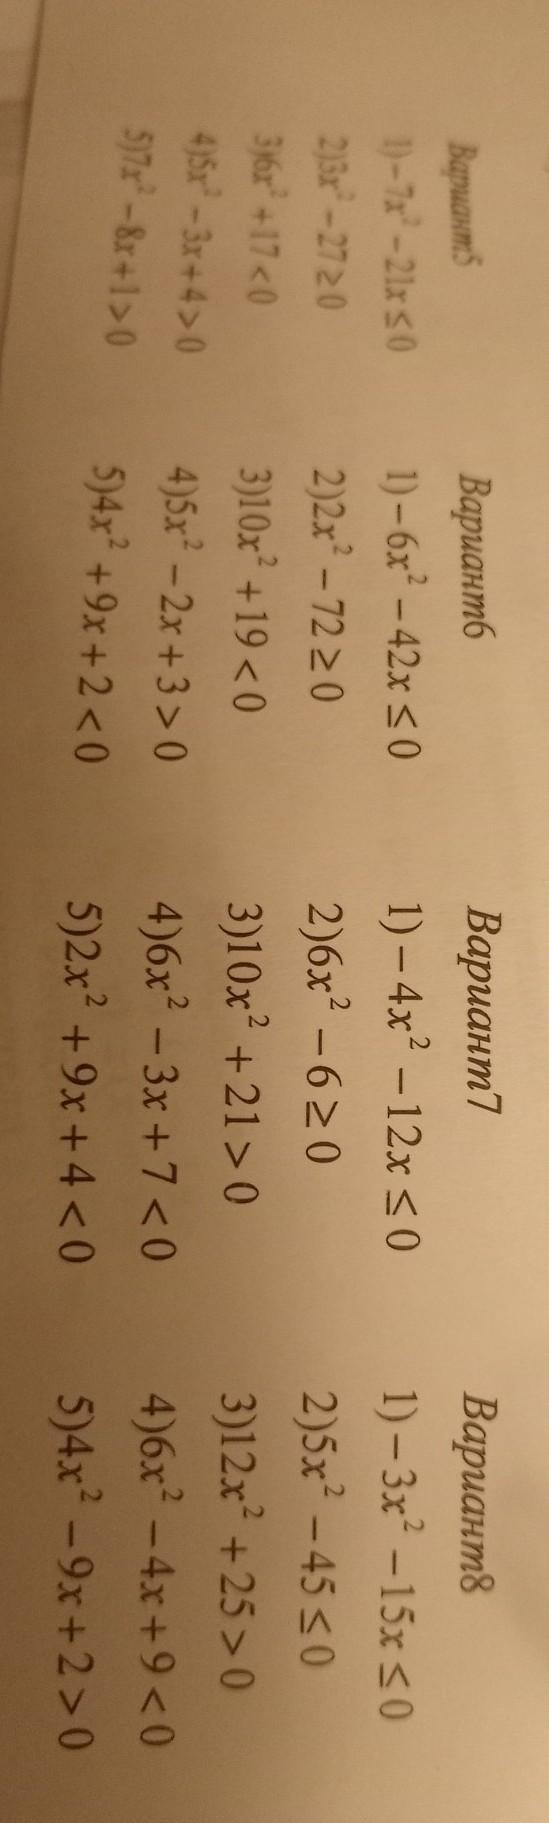 Вариант5
1)−7x² −21x ≤ 0
2)3x² −27 ≥ 0
3)6x² +17 < 0
4)5x² −3x+4 > 0
5)7x² −8x+1 > 0
Вариант6
1)−6x² −42x ≤ 0
2)2x² −72 ≥ 0
3)10x² +19 < 0
4)5x² −2x+3 > 0
5)4x² +9x+2 < 0
Вариант7
1)−4x² −12x ≤ 0
2)6x² −6 ≥ 0
3)10x² +21 > 0
4)6x² −3x+7 < 0
5)2x² +9x+4 < 0
Вариант8
1)−3x² −15x ≤ 0
2)5x² −45 ≤ 0
3)12x² +25 > 0
4)6x² −4x+9 < 0
5)4x² −9x+2 > 0